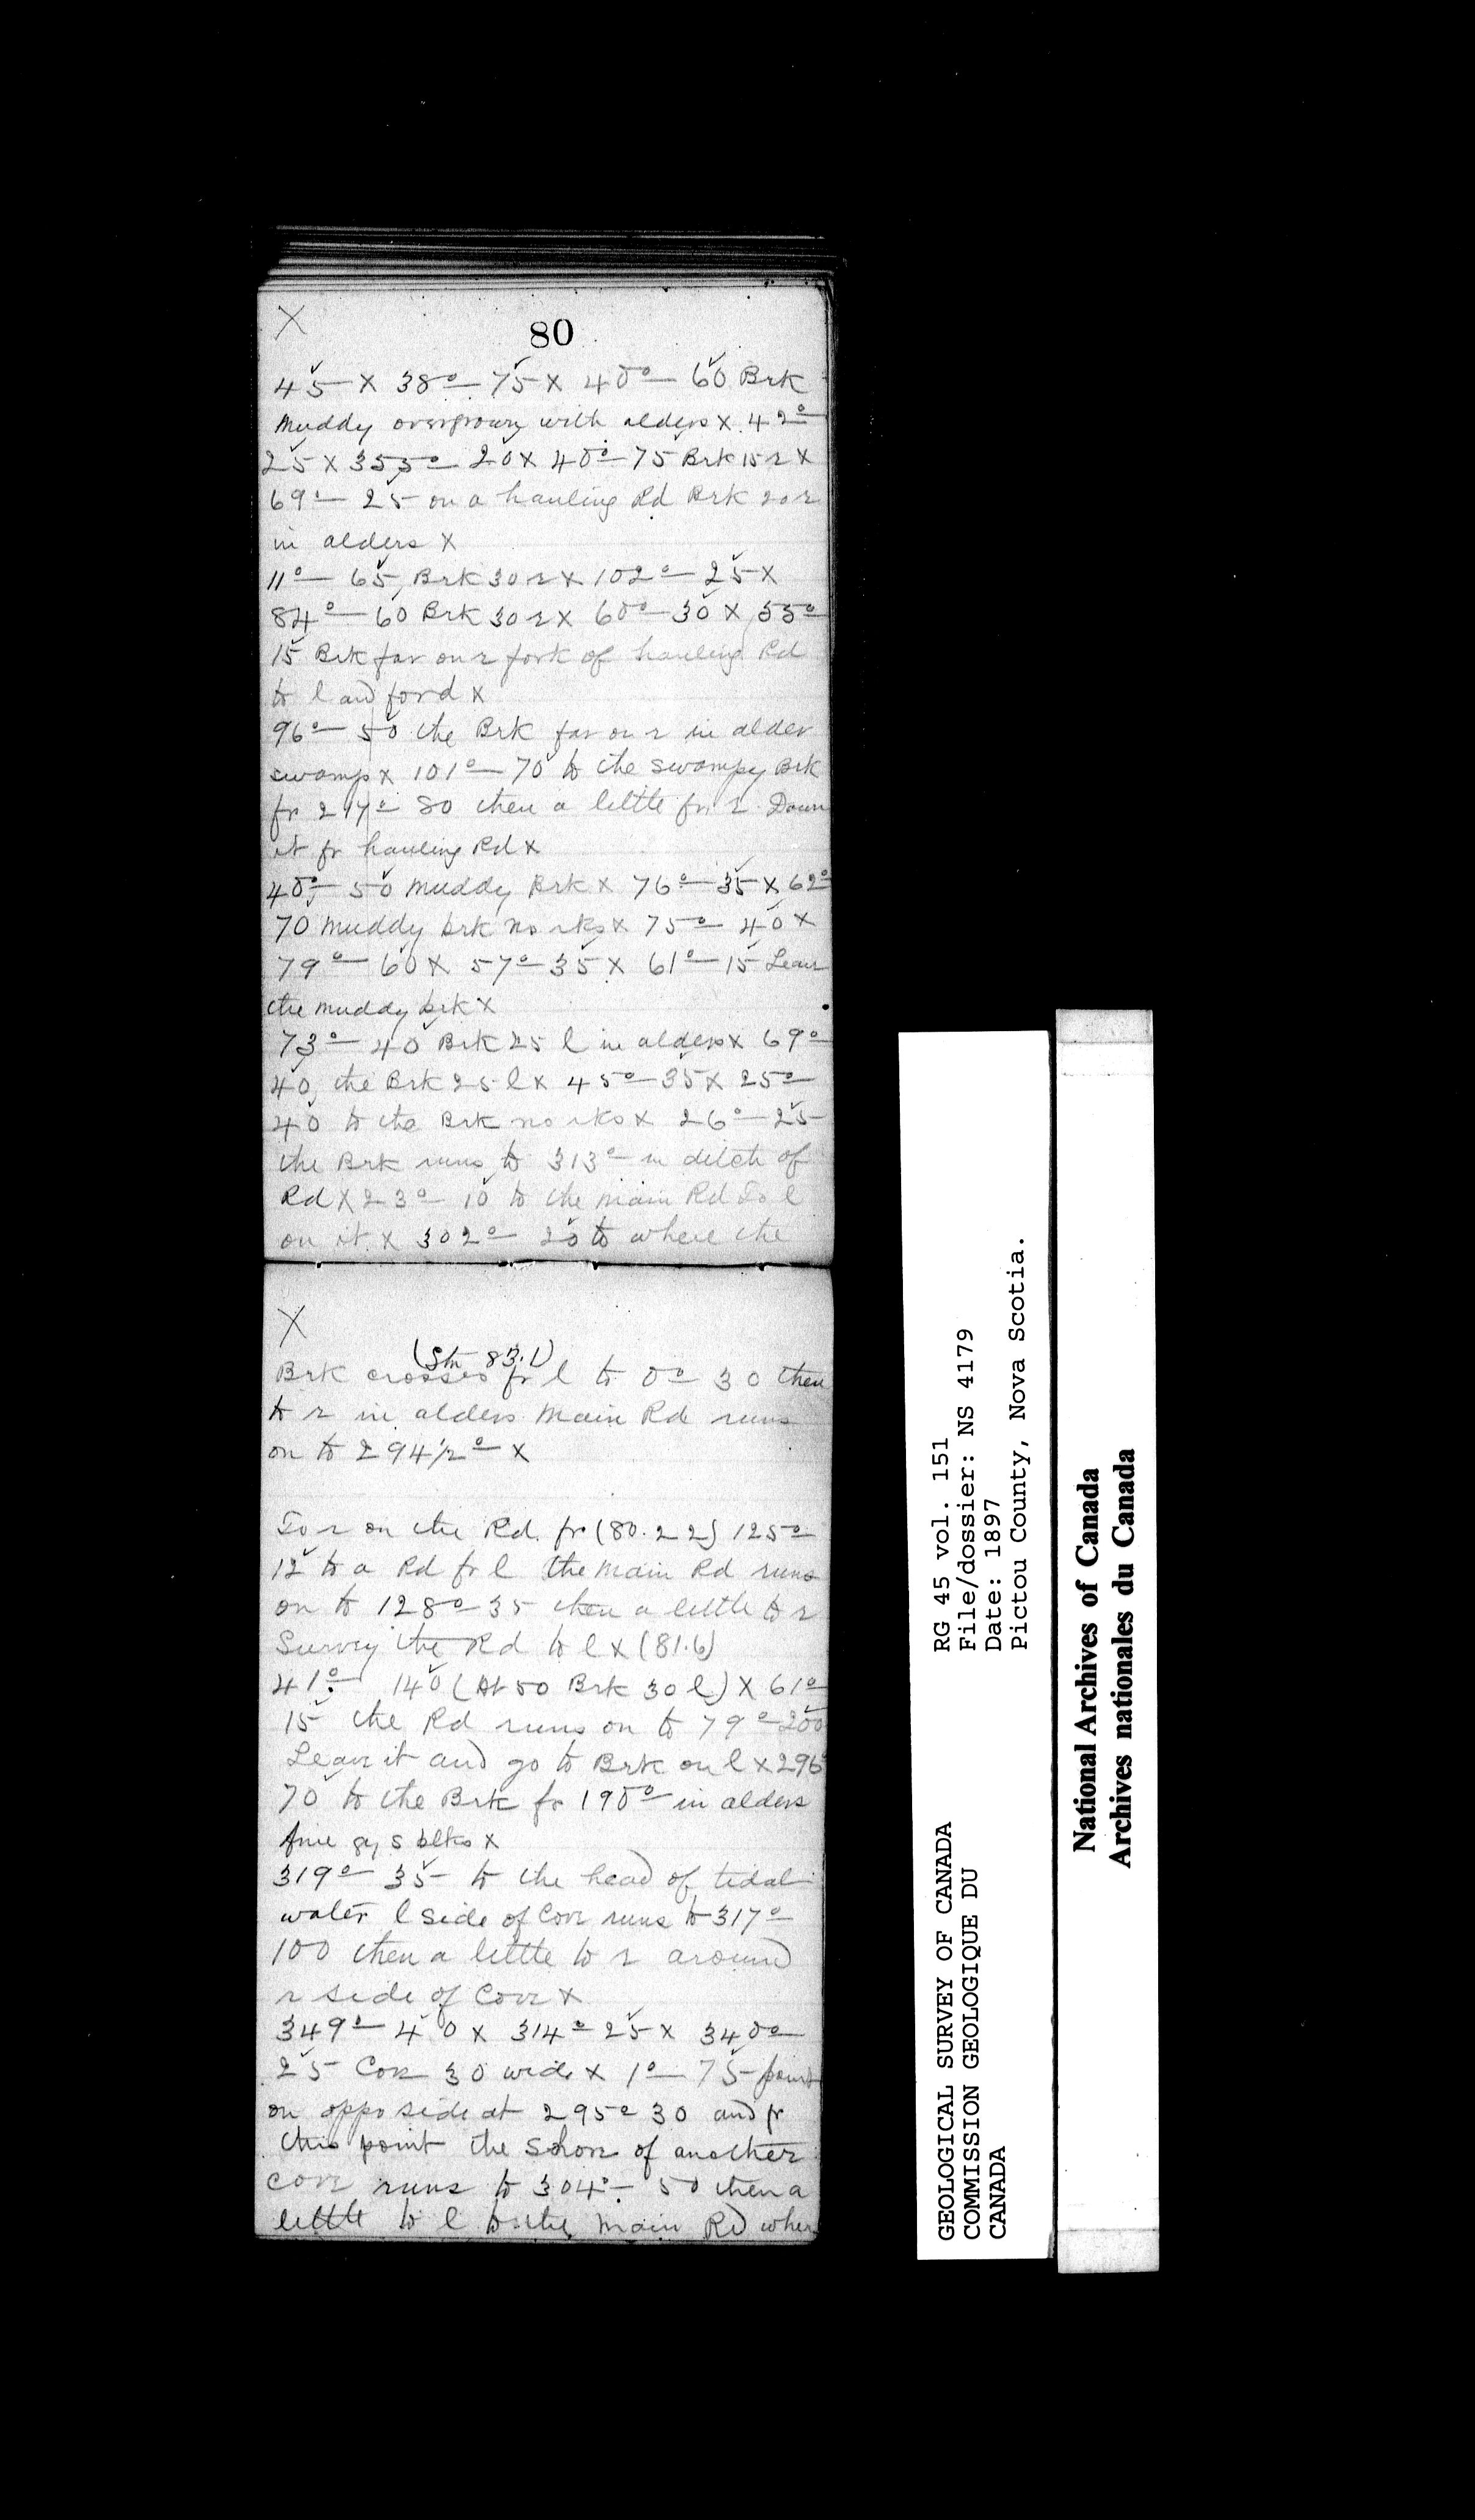 X
80
45 X 38° — 75 X 40° — 60 Brk
Muddy overgrown with alders X 42°
25 X 355° — 20 X 40° — 75 Brk 15 r X
69° — 25 on a hauling Rd Brk 20 r
in alders X
11° — 65, Brk 30 r X 102° — 25 X
84° — 60 Brk 30 r X 60° — 30 X 55°
15 Brk far on r fork of hauling Rd
to l and ford X
96° — 50 the Brk far on r in alder
swamp X 101° — 70 to the swampy Brk
fr 217° 80 then a little fr r. Down
it fr hauling Rd X
40° — 50 Muddy Brk X 76° — 35 X 62°
70 Muddy brk no rks X 75° — 40 X
79° — 60 X 57° — 35 X 61° — 15 Leave
the muddy brk X
73° — 40 Brk 25 l in alders X 69°
40, the Brk 25 l X 45° — 35 X 25°
40 to the Brk no rks X 26° — 25
the Brk runs to 313° in ditch of
Rd X 23° — 10 to the main Rd Go l
on it X 302° — 20 to where the
X
(Stn 83.1)
Brk crosses fr l to 0° 30 then
to r in alders Main Rd runs
on to 294 1/2° X
Go r on the Rd. fr (80.22) 125°
12 to a Rd fr l the main Rd runs
on to 128° 35 then a little to r
Survey the Rd to l X (81.6)
41° 140 (At 50 Brk 30 l) X 61°
15 the Rd runs on to 79° 200
Leave it and go to Brk on l X 296°
70 to the Brk fr 190° in alders
fine gy s blks X
319° 35 — to the head of tidal
water l side of Cove runs to 317°
100 then a little to r around
r side of Cove X
349° — 40 X 314° 25 X 340°
25 Cove 30 wide X 1° — 75 point
on oppo side at 295° 30 and fr
this point the Shore of another
cove runs to 304° — 50 then a
little to l to the main Rd wher
GEOLOGICAL SURVEY OF CANADA
COMMISSION GEOLOGIQUE DU
CANADA
RG 45 vol. 151
File/dossier: NS 4179
Date: 1897
Pictou County, Nova Scotia.
National Archives of Canada
Archives nationales du Canada